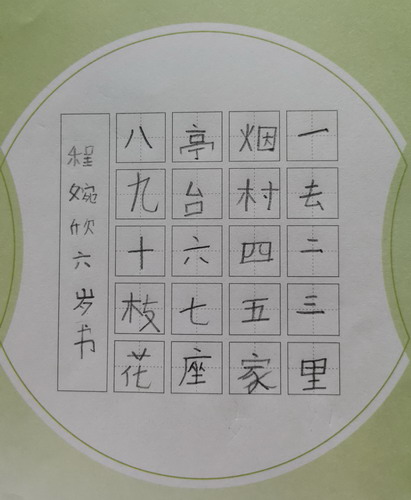 一去二三里
烟村四五家
亭台六七座
八九十枝花
程婉欣六岁书